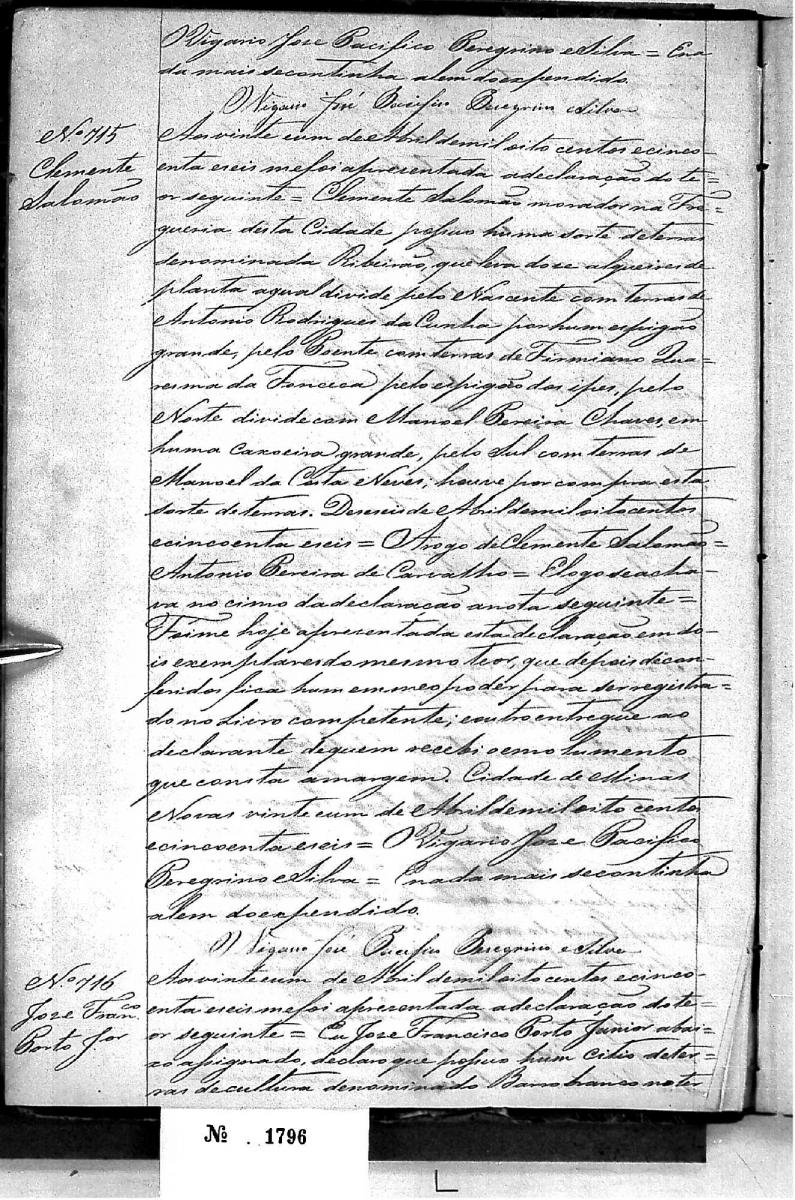 Vigario Jose Pacifico Peregrino eSilva = Ena
da mais secontinha alem doexpendido.
O Vigario José Pacifico Peregrino e Silva
Nº 715
Clemente
Salomão
Aosvinte eum deAbril demil oito centos ecinco-
enta eseis mefoi apresentada adeclaração do te=
or seguinte = Clemente Salomão morador na Fre=
gueria desta Cidade possuo huma sorte deterras
denominada Ribeirão, que leva doze alqueires de
planta aqual divide pelo Nascente com terras de
Antonio Rodrigues da Cunha por hum espigão
grande, pelo Poente com terras de Firmiano Qua=
resma da Fonceca pelo espigão dos ipes, pelo
Norte divide com Manoel Pereira Chaves, em
huma Caxoeira grande, pelo Sul com terras de
Manoel da Costa Neves; houve por compra esta
sorte de terras. Deseseis de Abril demil oitocentos
ecincoenta eseis = Arogo de Clemente Salomão =
Antonio Pereira de Carvalho = E logo seacha-
va no cimo dadeclaração anota seguinte =
Foime hoje apresentada esta declaração em do-
is exemplares do mesmo teor, que depois de con-
feridos fica hum em meo poder para ser registra=
do no Livro competente; eoutro entregue ao
declarante dequem recebi oemolumento
que consta amargem. Cidade de Minas
Novas vinte eum de Abril demil oito centos
ecincoenta eseis = O Vigario Jose Pacifico
Peregrino eSilva = Enada mais secontinha
alem do expendido.
O Vigario José Pacifico Peregrino e Silva
Nº 716
Jose Franco.
Porto Jor
Aosvinte eum de Abril demil oito centos ecinco-
enta eseis mefoi apresentada adeclaração dote=
or seguinte = Eu Jose Francisco Porto Junior abai-
xo assignado, declaro que possuo hum Citio deter=
ras decultura denominado Barrobranco no ter
Nº . 1796